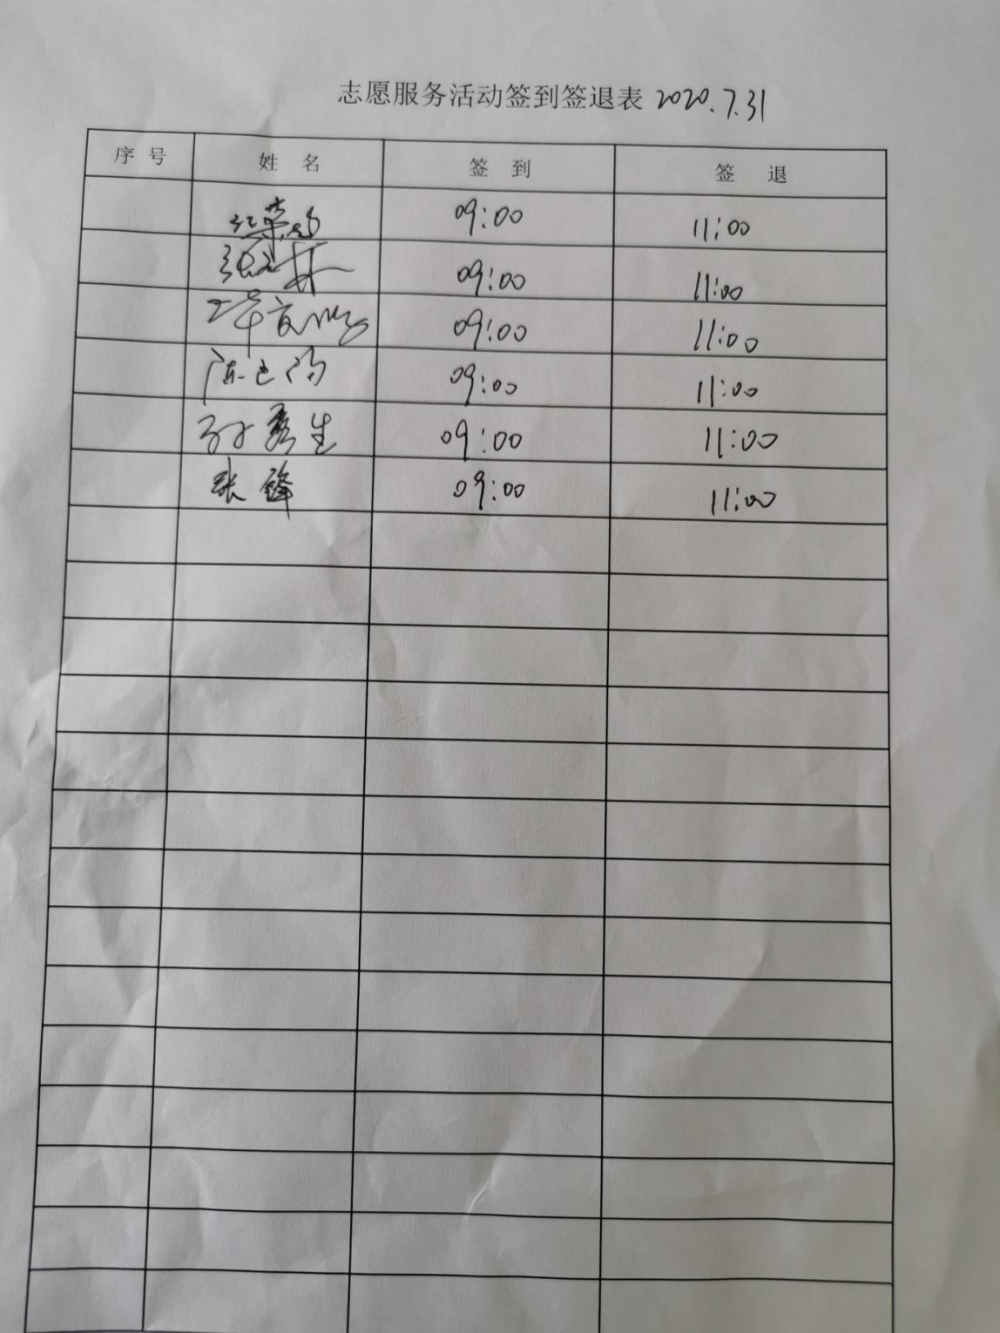 志愿服务活动签到签退表 2020.7.31
序号 姓名 签到 签退
09:00 11:00
09:00 11:00
09:00 11:00
陈 09:00 11:00
孙秀生 09:00 11:00
张锋 09:00 11:00